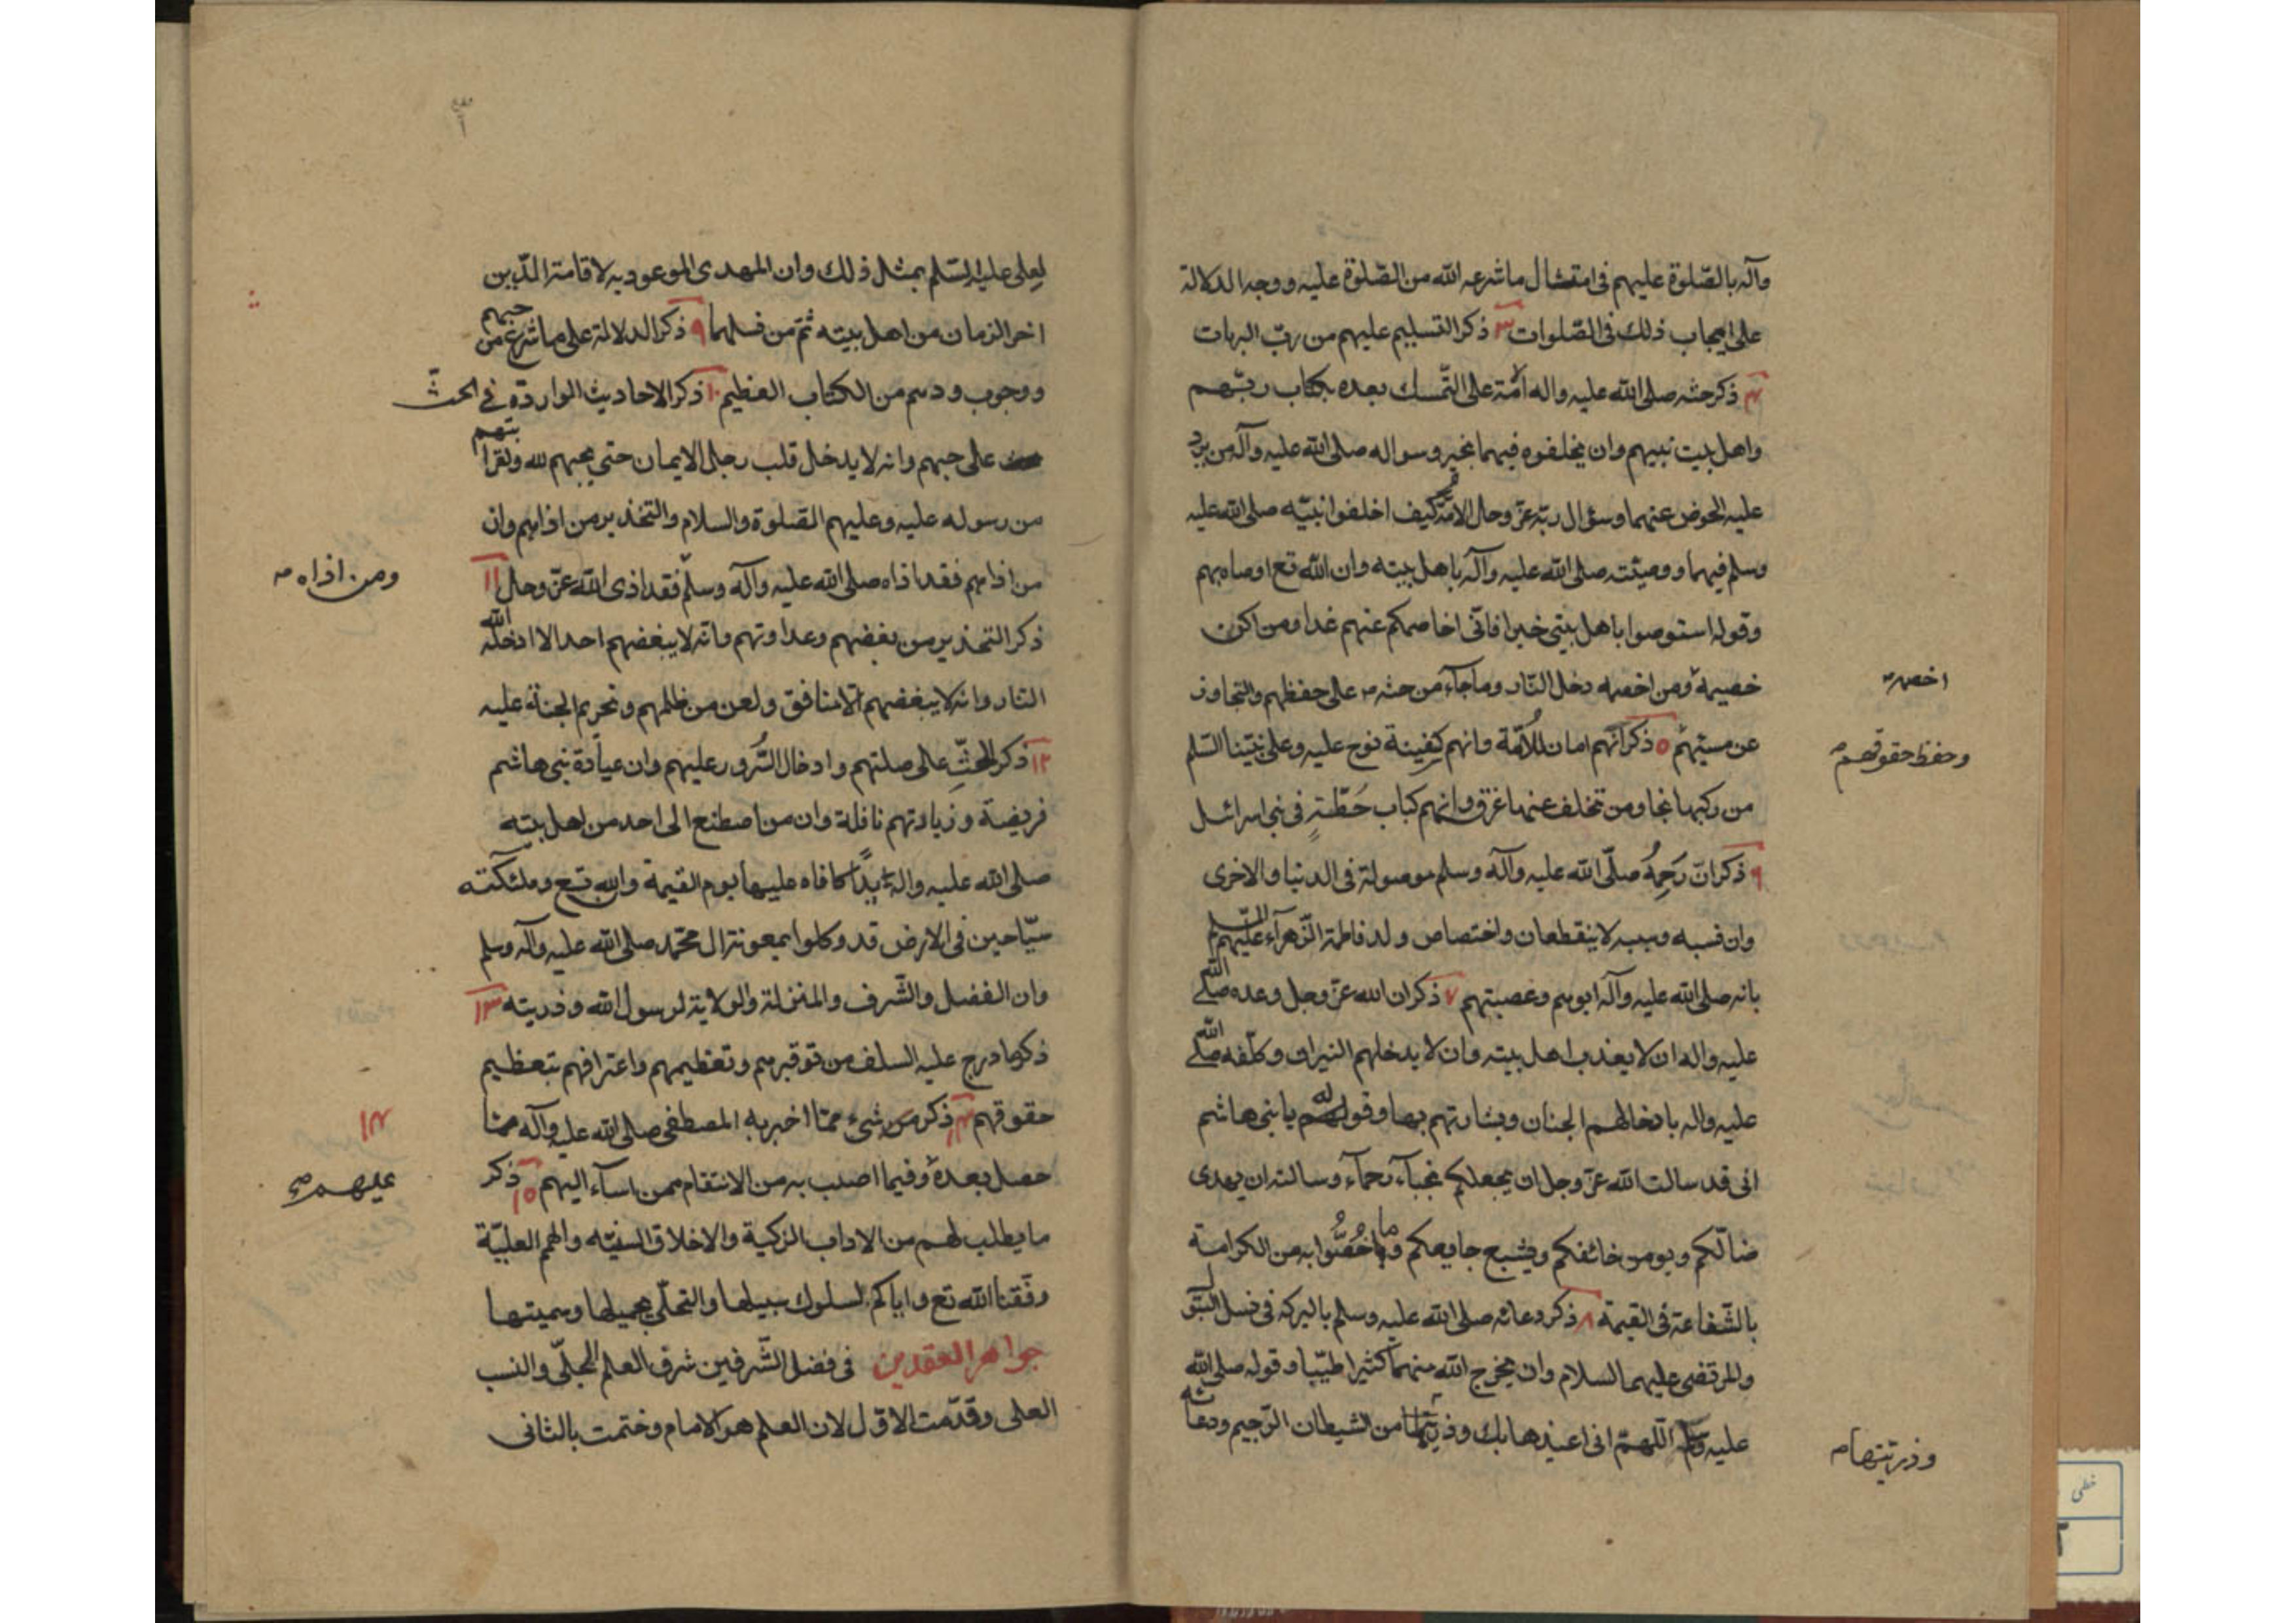 وآله بالصّلوة عليهم فى امتثال ما شرعه الله من الصّلوة عليه ووجه الدلالة
على ايجاب ذلك فى الصّلوات ٣ ذكر التسليم عليهم من ربّ البريات
٤ ذكر حثه صلى الله عليه واله الأمّة على التّمسك بعده بكتاب ربّهم
واهل بيت نبيهم وان يخلفوه فيهما بخير وسواله صلى الله عليه وآله من يرد
عليه الحوض عنهما وسؤال ربّه عزّ وجل الامّة كيف اخلفوا نبيّه صلى الله عليه
وسلم فيهما ووصيّته صلى الله عليه وآله باهل بيته وان الله تع اوصاه بهم
وقوله استوصوا باهل بيتى خيرا فانّى اخاصمكم عنهم غدا ومن اكن
خصيمه ومن اخصمه دخل النّار وما جآء من حثه على حفظهم والتجاوز
اخصمه
عن مسيئهم ٥ ذكر انّهم امان للأمّة وانهم كسفينة نوح عليه وعلى نبيّنا السّلم
وحفظ حقوقهم
من ركبها نجا ومن تخلف عنها غرق وانهم كباب حَطّةٍ فى بنى اسرائيل
٦ ذكر انّ رَحِمهُ صلّى الله عليه وآله وسلم موصولة فى الدنيا والاخرى
وان نسبه وسببه لا ينقطعان واختصاص ولد فاطمة الزّهرآء عليهم السّلم
بانه صلى الله عليه وآله ابوهم وعصبتهم ٧ ذكر ان الله عزّ وجل وعده صلى الله
عليه واله ان لا يعذب اهل بيته وان لا يدخلهم النيران وكلّفه صلى الله
عليه واله بادخالهم الجنان وبشارتهم بها وقوله لهم يا بنى هاشم
انى قد سالت الله عزّ وجل ان يجعلكم نجبآء رحمآء وسالته ان يهدى
ضالّكم ويومن خائفكم ويشبع جايعكم وما خُصُّوا به من الكرامة
بالشّفاعة فى القيمة ٨ ذكر دعائه صلى الله عليه وسلم بالبركه فى نسل البتول
والمرتضى عليهما السلام وان يخرج الله منهما كثيرا طيّبا وقوله صلى الله
عليه اللّهمّ انى اعيذها بك من الشيطان الرّجيم ودعائه
وذريّتها
لعلى عليه السّلم بمثل ذلك وان المهدى الموعود به لاقامة الدّين
اخر الزمان من اهل بيته ثمّ من نسلهما ٩ ذكر الدلالة على ما شرع من حبهم
ووجوب ودهم من الكتاب العظيم ١٠ ذكر الاحاديث الواردة فى الحثّ
على حبهم وانه لا يدخل قلب رجل الايمان حتى يحبهم لله ولقرابتهم
من رسوله عليه وعليهم الصّلوة والسلام والتحذير من اذاهم وان
من اذاهم فقد اذاه صلى الله عليه وآله وسلّم فقد اذى الله عزّ وجل ١١
ومن اذاه
ذكر التحذير من بغضهم وعداوتهم وانه لا يبغضهم احد الا ادخله الله
النّار وانه لا يبغضهم الا منافق ولعن من ظلمهم وتحريم الجنة عليه
١٢ ذكر الحثّ على صلتهم وادخال السُّرور عليهم وان عيادة بنى هاشم
فريضة وزيارتهم نافلة وان من اصطنع الى احد من اهل بيته
صلى الله عليه واله يداً كافاه عليها يوم القيمة والله تع وملئكته
سيّاحين فى الارض قد وكلوا بمعونة ال محمّد صلى الله عليه وآله وسلم
وان الفضل والشّرف والمنزلة والولاية لرسول الله وذريته ١٣
ذكر ما درج عليه السلف من توقيرهم وتعظيمهم واعترافهم بتعظيم
حقوقهم ١٤ ذكر من شىء ممّا اخبر به المصطفى صلى الله عليه وآله ممّا
١٤
حصل بعده وفيما اصيب به من الانتقام ممن اسآء اليهم ١٥ ذكر
عليهم
ما يطلب لهم من الاداب الزكية والاخلاق السنيّه والهمم العليّة
وفّقنا الله تع واياكم لسلوك سبيلها والتحلّى بجميلها وسميتها
جواهر العقدين فى فضل الشّرفين شرف العلم الجلّى والنسب
العلى وقدّمت الاوّل لان العلم هو الامام وختمت بالثانى
خطى